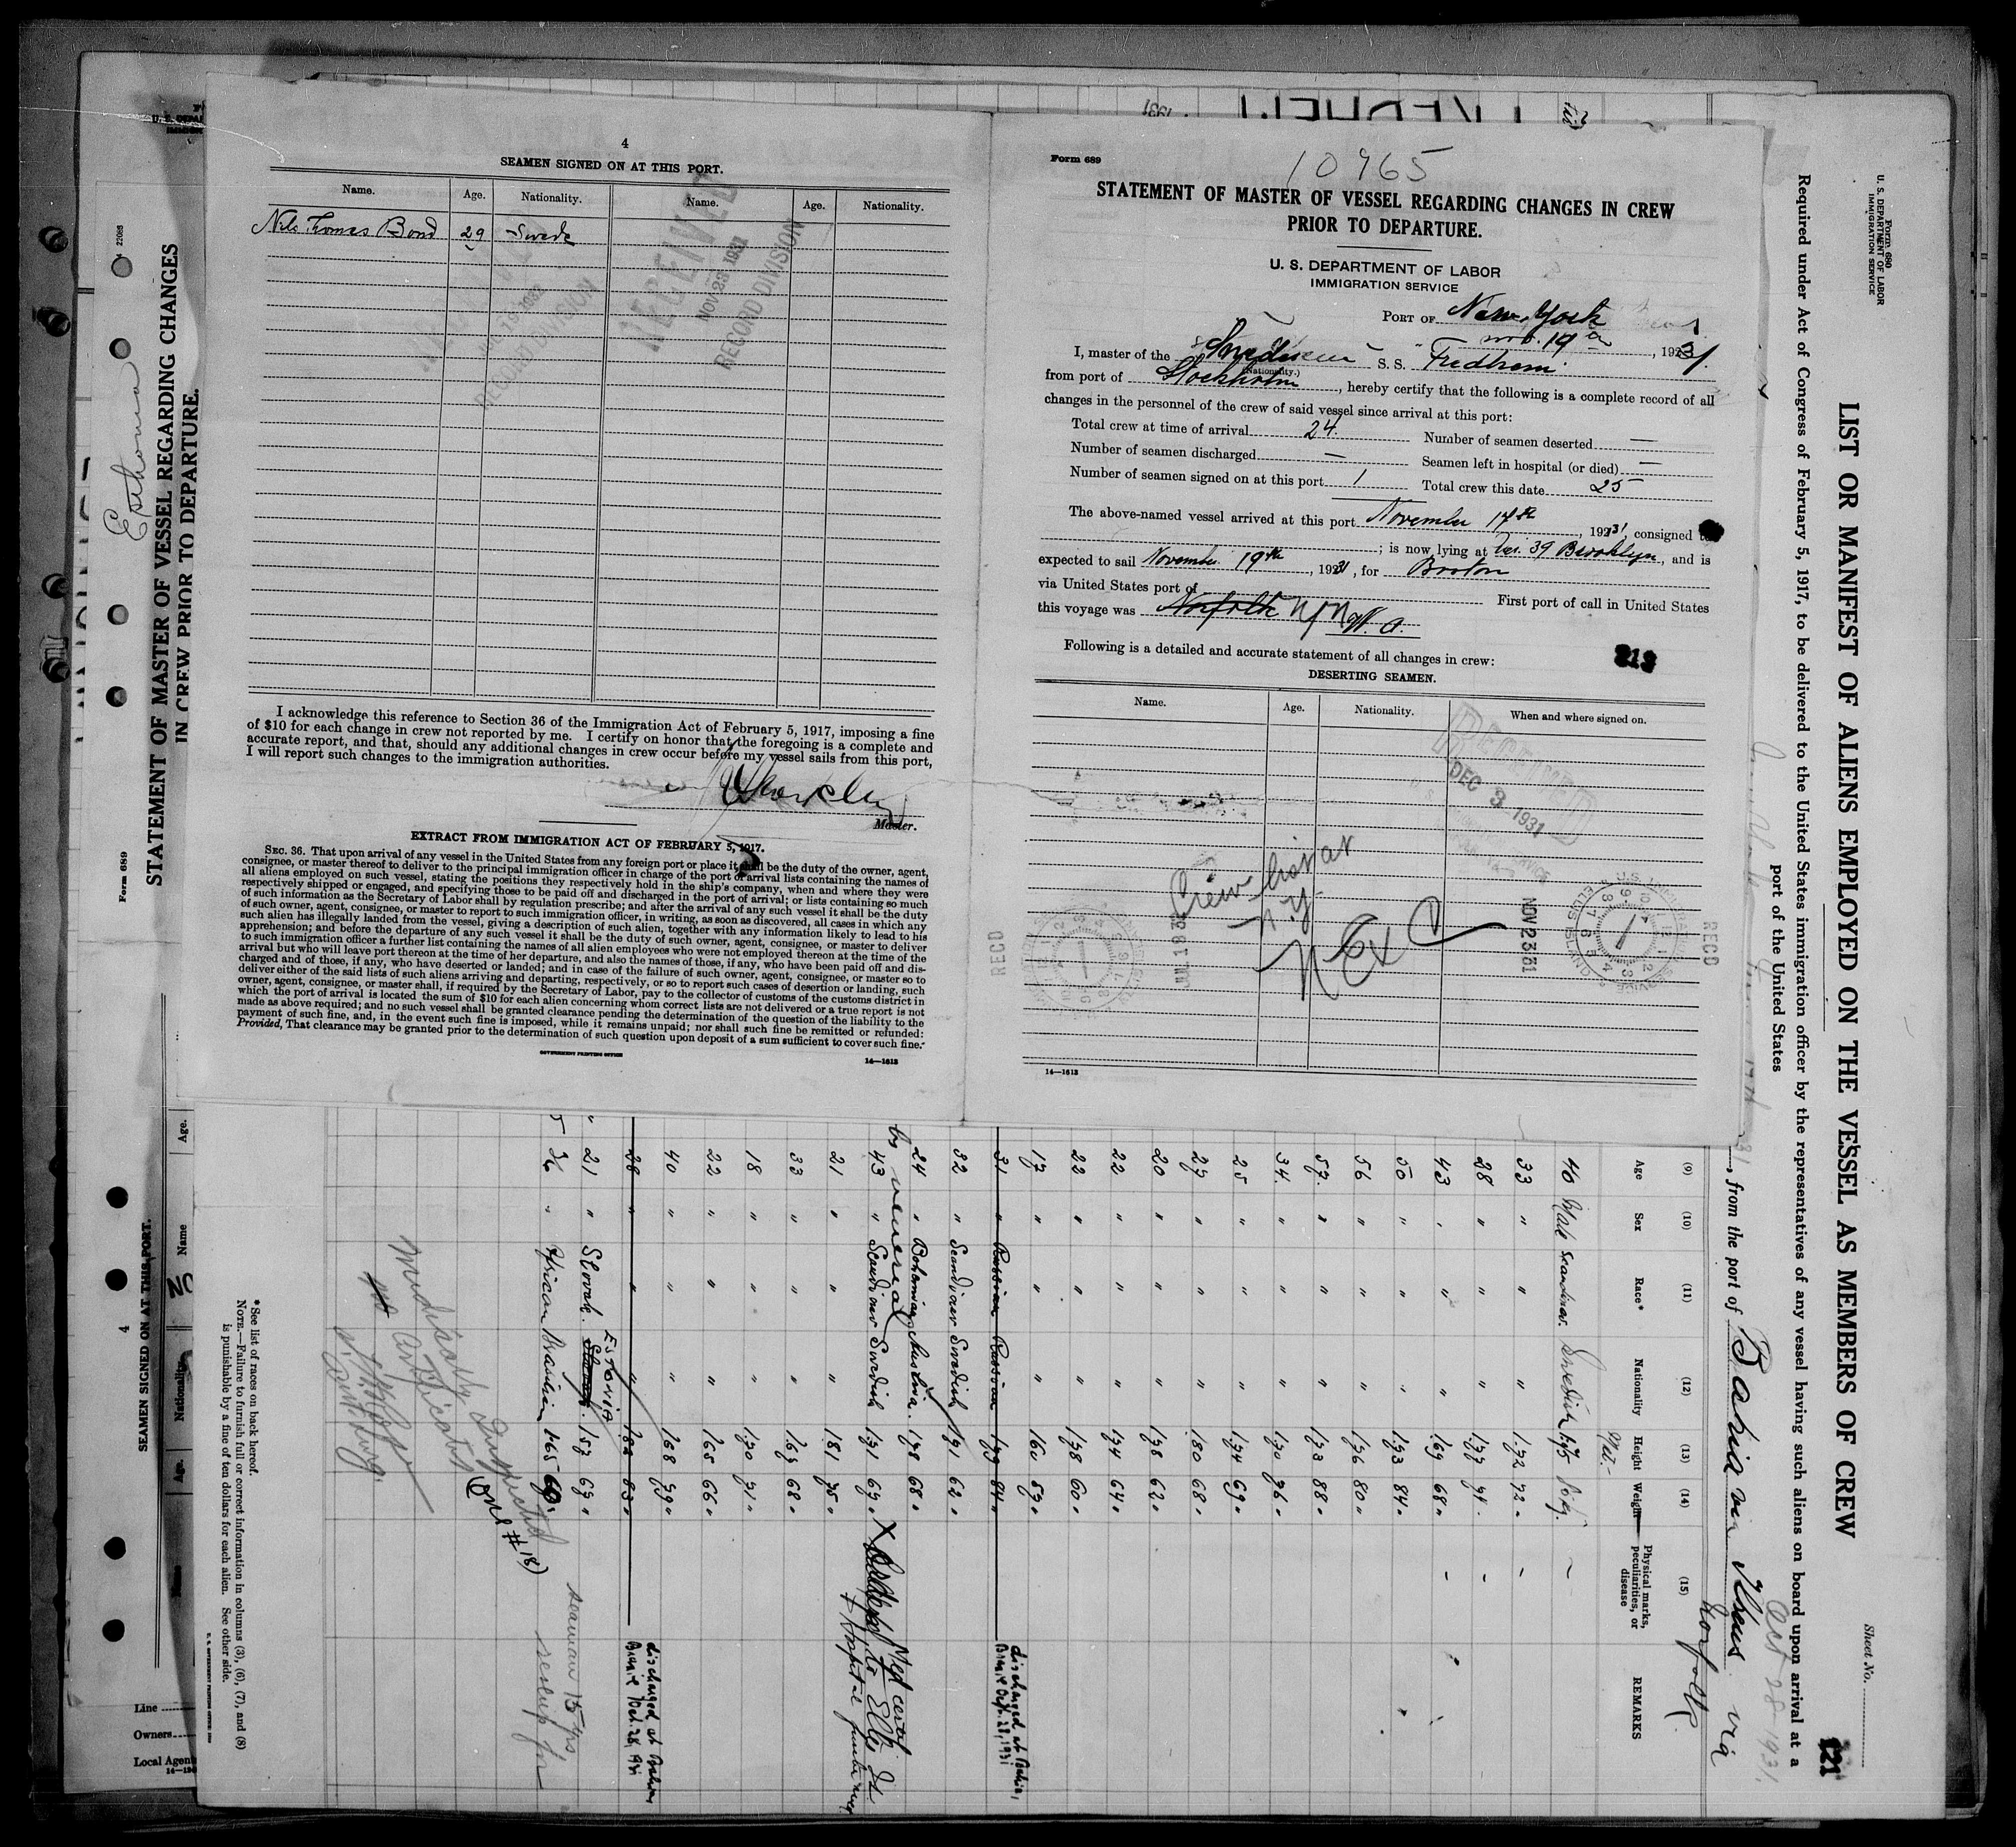 4
SEAMEN SIGNED ON AT THIS PORT.
Name. Age. Nationality. Name. Age. Nationality.
Nils Thomas Bond 29 Swede
RECEIVED
NOV 23 1931
RECORD DIVISION
I acknowledge this reference to Section 36 of the Immigration Act of February 5, 1917, imposing a fine
of $10 for each change in crew not reported by me. I certify on honor that the foregoing is a complete and
accurate report, and that, should any additional changes in crew occur before my vessel sails from this port,
I will report such changes to the immigration authorities.
Master.
EXTRACT FROM IMMIGRATION ACT OF FEBRUARY 5, 1917.
SEC. 36. That upon arrival of any vessel in the United States from any foreign port or place it shall be the duty of the owner, agent,
consignee, or master thereof to deliver to the principal immigration officer in charge of the port of arrival lists containing the names of
all aliens employed on such vessel, stating the positions they respectively hold in the ship's company, when and where they were
respectively shipped or engaged, and specifying those to be paid off and discharged in the port of arrival; or lists containing so much
of such information as the Secretary of Labor shall by regulation prescribe; and after the arrival of any such vessel it shall be the duty
of such owner, agent, consignee, or master to report to such immigration officer, in writing, as soon as discovered, all cases in which any
such alien has illegally landed from the vessel, giving a description of such alien, together with any information likely to lead to his
apprehension; and before the departure of any such vessel it shall be the duty of such owner, agent, consignee, or master to deliver
to such immigration officer a further list containing the names of all alien employees who were not employed thereon at the time of the
arrival but who will leave port thereon at the time of her departure, and also the names of those, if any, who have been paid off and dis-
charged and of those, if any, who have deserted or landed; and in case of the failure of such owner, agent, consignee, or master so to
deliver either of the said lists of such aliens arriving and departing, respectively, or so to report such cases of desertion or landing, such
owner, agent, consignee, or master shall, if required by the Secretary of Labor, pay to the collector of customs of the customs district in
which the port of arrival is located the sum of $10 for each alien concerning whom correct lists are not delivered or a true report is not
made as above required; and no such vessel shall be granted clearance pending the determination of the question of the liability to the
payment of such fine, and, in the event such fine is imposed, while it remains unpaid; nor shall such fine be remitted or refunded:
Provided, That clearance may be granted prior to the determination of such question upon deposit of a sum sufficient to cover such fine.
GOVERNMENT PRINTING OFFICE
14—1613
Form 689
10965
STATEMENT OF MASTER OF VESSEL REGARDING CHANGES IN CREW
PRIOR TO DEPARTURE.
U. S. DEPARTMENT OF LABOR
IMMIGRATION SERVICE
PORT OF New York
Nov. 19th, 1931
I, master of the Swedish S. S. Fredhem
(Nationality.)
from port of Stockholm, hereby certify that the following is a complete record of all
changes in the personnel of the crew of said vessel since arrival at this port:
Total crew at time of arrival 24. Number of seamen deserted —
Number of seamen discharged — Seamen left in hospital (or died) —
Number of seamen signed on at this port 1 Total crew this date 25
The above-named vessel arrived at this port November 17th, 1931, consigned
; is now lying at 39 Brooklyn, and is
expected to sail November 19th, 1931, for Boston
via United States port of First port of call in United States
this voyage was Norfolk
Following is a detailed and accurate statement of all changes in crew:
DESERTING SEAMEN.
Name. Age. Nationality. When and where signed on.
RECEIVED
DEC 3 1931
Crew list at
N.Y.
RECD
NOV 23 31
RECD
14—1613
Form 680
U. S. DEPARTMENT OF LABOR
IMMIGRATION SERVICE
Sheet No.
121
LIST OR MANIFEST OF ALIENS EMPLOYED ON THE VESSEL AS MEMBERS OF CREW
Required under Act of Congress of February 5, 1917, to be delivered to the United States immigration officer by the representatives of any vessel having such aliens on board upon arrival at a
port of the United States
Oct 28 1931
, from the port of Bahia via Ilheus via
Norfolk.
(9) (10) (11) (12) (13) (14) (15)
Age Sex Race* Nationality Height Weight Physical marks, peculiarities, or disease REMARKS
40 Male Scandinav. Swedish 1.75
33 " " " 1.72 72 "
28 " " " 1.77 74 "
43 " " " 1.69 68 "
50 " " " 1.73 84 "
56 " " " 1.76 80 "
57 " " " 1.73 88 "
34 " " " 1.70 76 "
25 " " " 1.74 69 "
27 " " " 1.80 68 "
20 " " " 1.78 62 "
22 " " " 1.74 64 "
22 " " " 1.78 60 "
17 " " " 160 57 "
31 " Russian Russian 179 84 " discharged at Bahia,
32 " Scandinav Swedish 171 62 "
24 " Bohemian Austria. 178 68 "
43 " Scandinav Swedish 171 67 " Hospital
by venereal
21 " " " 181 75 "
33 " " " 167 68 "
18 " " " 170 71 "
22 " " " 165 66 "
40 " " " 168 79 "
28 " " " 182 83 " discharged at Bahia
21 " Slovak. Estonia 157 67 "
36 " African Brasilian 165 60 "
seaman 15 yrs
Medically Inspected
(Card #18)
* See list of races on back hereof.
NOTE.—Failure to furnish full or correct information in columns (3), (6), (7), and (8)
is punishable by a fine of ten dollars for each alien. See other side.
Form 689
STATEMENT OF MASTER OF VESSEL REGARDING CHANGES
IN CREW PRIOR TO DEPARTURE.
4
SEAMEN SIGNED ON AT THIS PORT.
Age. Name Nationality Age. Name
Line
Owners
Local Agent